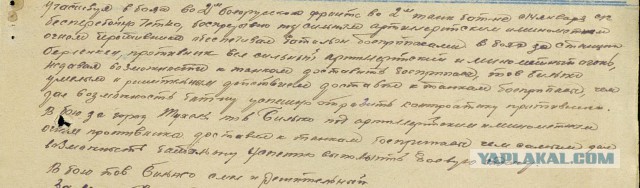 участвуя в боях во 2м Белорусском фронте во 2м танк. бат-не января с/г
бесперебойно, под сильным артиллерийским и минометным
огнем противника обеспечивал батальон боеприпасами. В боях за станцию
противник вел сильный артиллерийский и минометный огонь,
не давая возможности к танкам доставить боеприпасы, тов. Бинько
умелыми и решительными действиями доставил к танкам боеприпасы, чем
дал возможность бат-ну успешно отразить контратаку противника.
В бою за гор. тов. Бинько под артиллерийским и минометным
огнем противника доставил к танкам боеприпасы чем самым дал
возможность батальону успешно выполнить боевую
В бою тов. Бинько смел и решительный.
YAPLAKAL.COM